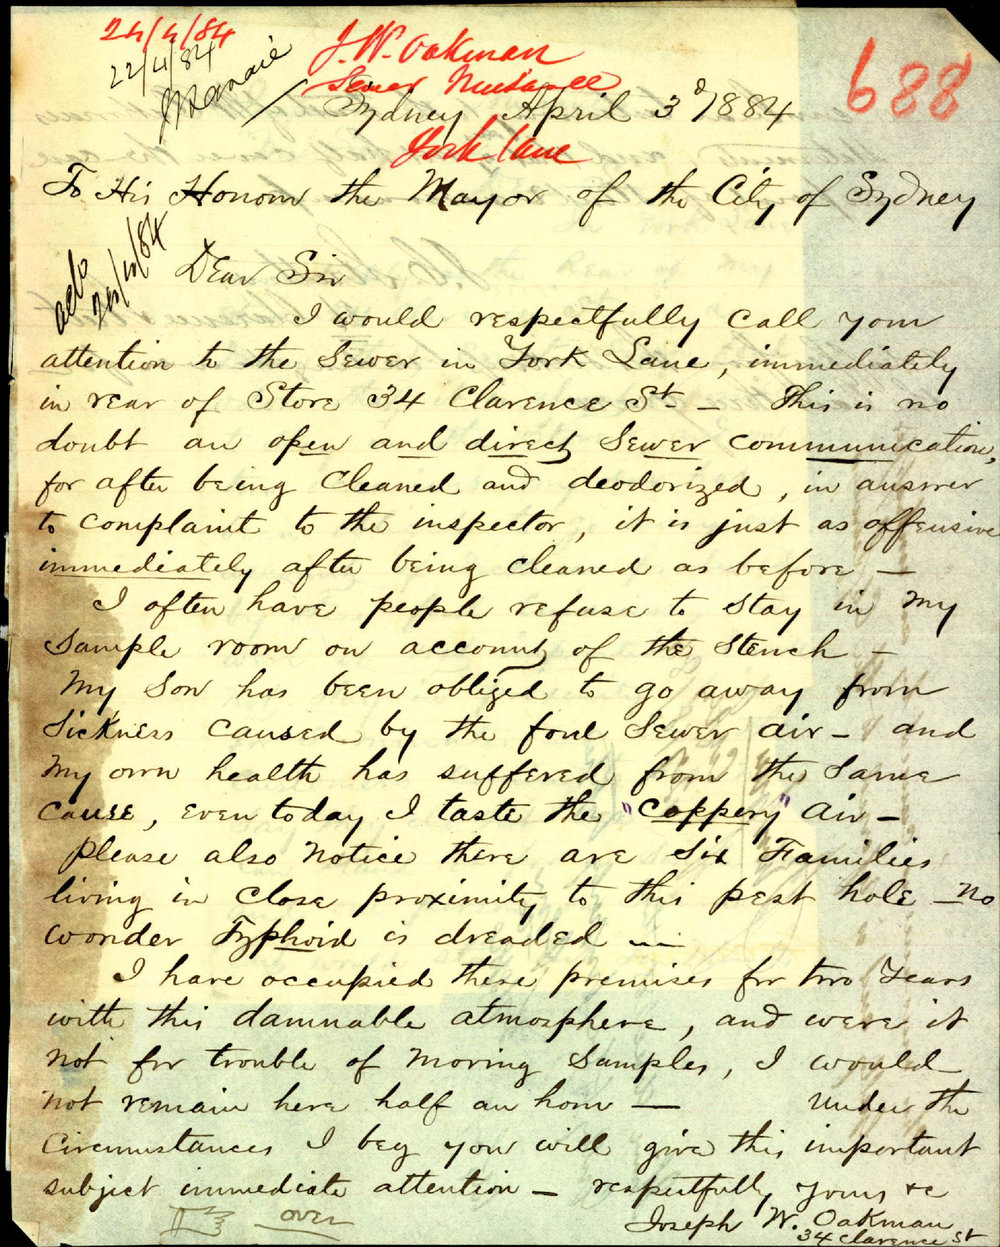 24/4/84
22/4/84
J. W. Oakman
Sewer Nuisance
688
Sydney April 3d/1884
York Lane
To His Honour the Mayor of the City of Sydney
Dear Sir
I would respectfully call your
attention to the Sewer in York Lane, immediately
in rear of Store 34 Clarence St - This is no
doubt an open and direct Sewer communication,
for after being cleaned and deodorized, in answer
to complaint to the inspector, it is just as offensive
immediately after being cleaned as before -
I often have people refuse to stay in my
Sample room on account of the Stench -
My Son has been obliged to go away from
Sickness caused by the foul Sewer air - and
My own health has suffered from the Same
cause, even today I taste the "coppery" air -
please also notice there are Six Families
living in close proximity to this pest hole - no
wonder Typhoid is dreaded -
I have occupied these premises for two Years
with this damnable atmosphere, and were it
not for trouble of moving Samples, I would
not remain here half an hour - Under the
Circumstances I beg you will give this important
subject immediate attention - respectfully Yours &c
over
Joseph W. Oakman
34 Clarence St